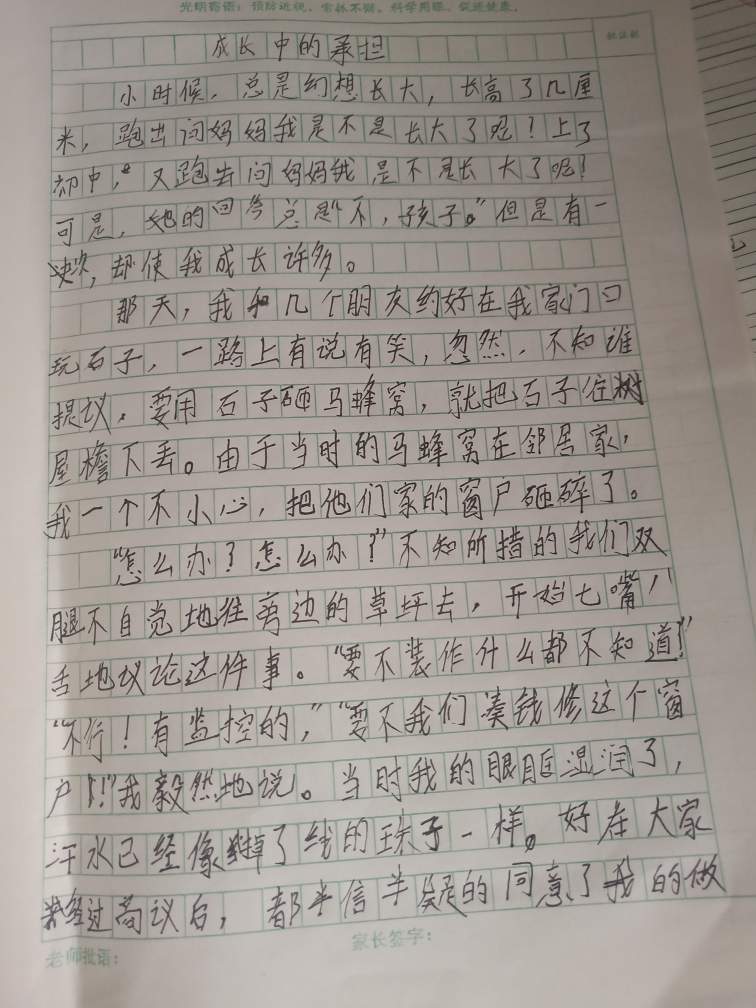 光明寄语：预防近视，常抓不懈。科学用眼，促进健康。
批注栏
成长中的承担
小时候，总是幻想长大，长高了几厘
米，跑出问妈妈我是不是长大了呢！上了
初中，又跑去问妈妈我是不是长大了呢！
可是，她的回答总是“不，孩子。”但是有一
次，却使我成长许多。
那天，我和几个朋友约好在我家门口
玩石子，一路上有说有笑，忽然，不知谁
提议，要用石子砸马蜂窝，就把石子往树
屋檐下丢。由于当时的马蜂窝在邻居家，
我一个不小心，把他们家的窗户砸碎了。
“怎么办？怎么办？”不知所措的我们双
腿不自觉地往旁边的草坪去，开始七嘴八
舌地议论这件事。“要不装作什么都不知道！”
“不行！有监控的，”“要不我们凑钱修这个窗
户！”我毅然地说。当时我的眼眶湿润了，
汗水已经像掉了线的珠子一样。好在大家
经过商议后，都半信半疑的同意了我的做
老师批语：
家长签字：